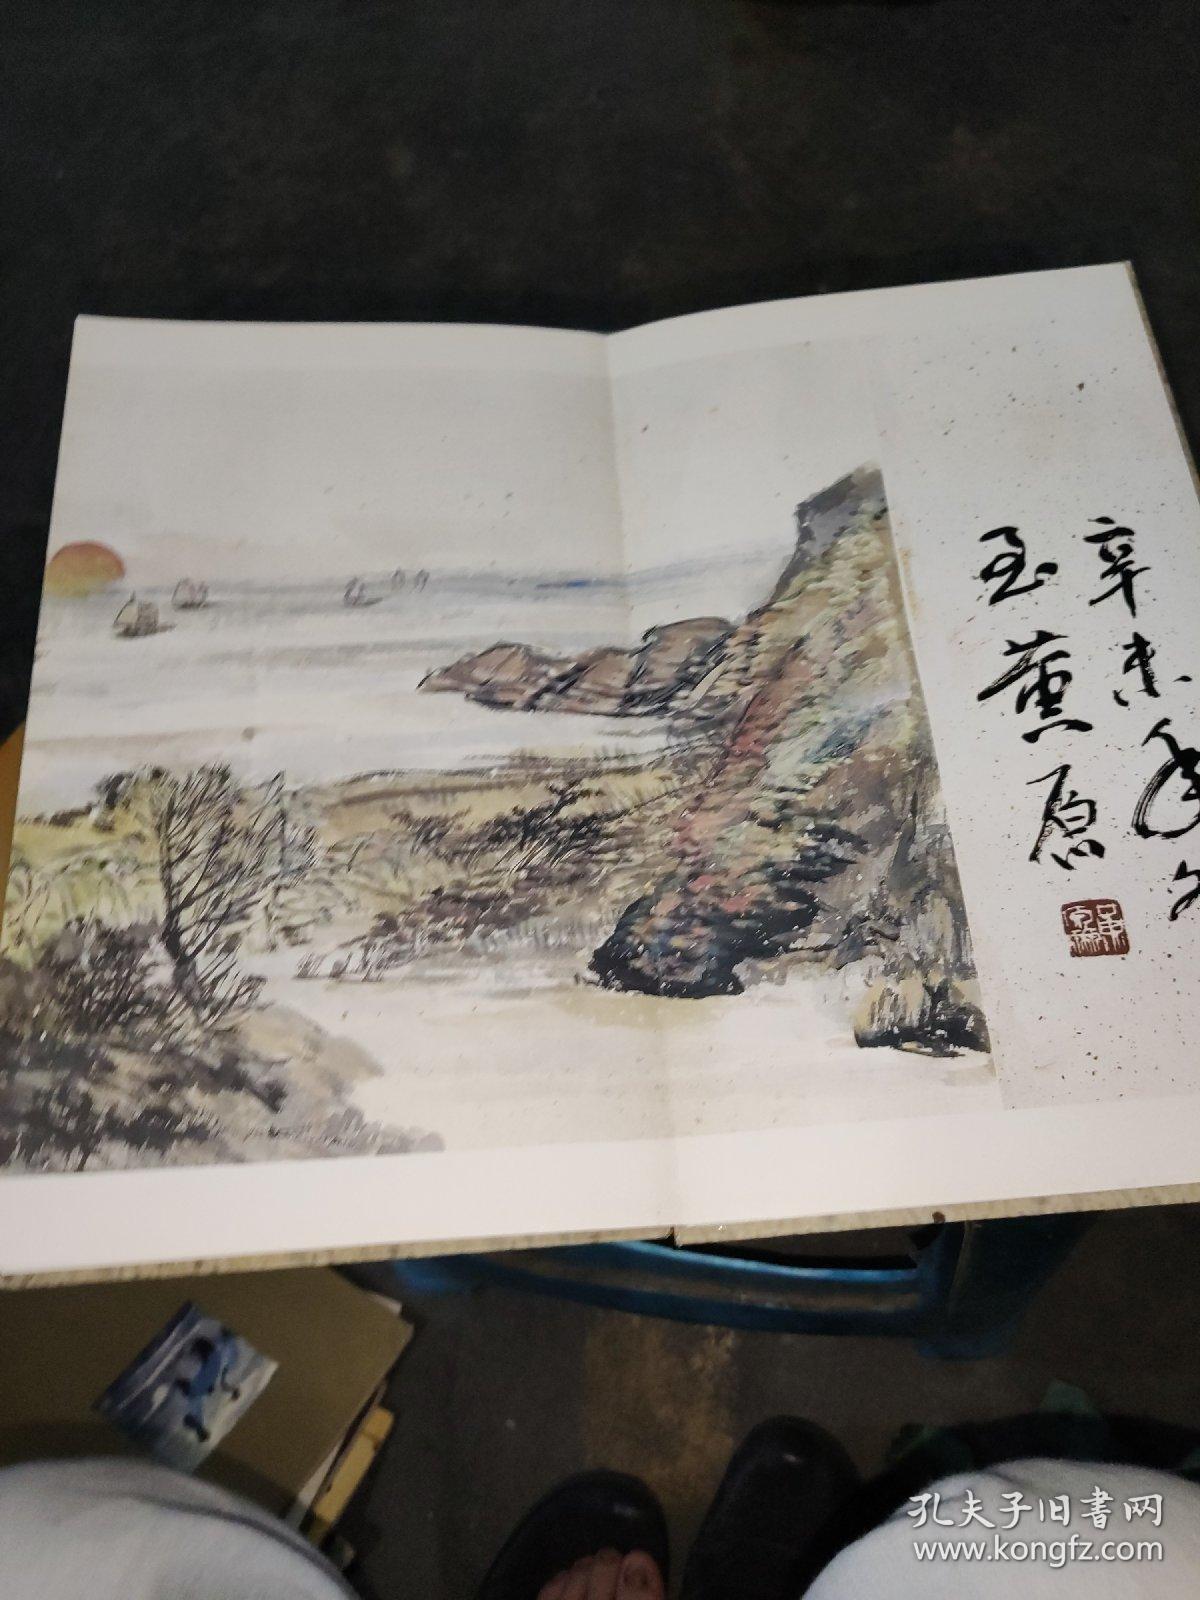 辛未年
至董原
孔夫子旧书网
www.kongfz.com